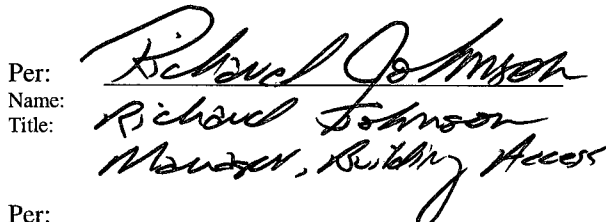 Per: Richard Johnson
Name: Richard Johnson
Title: Manager, Building Access
Per: